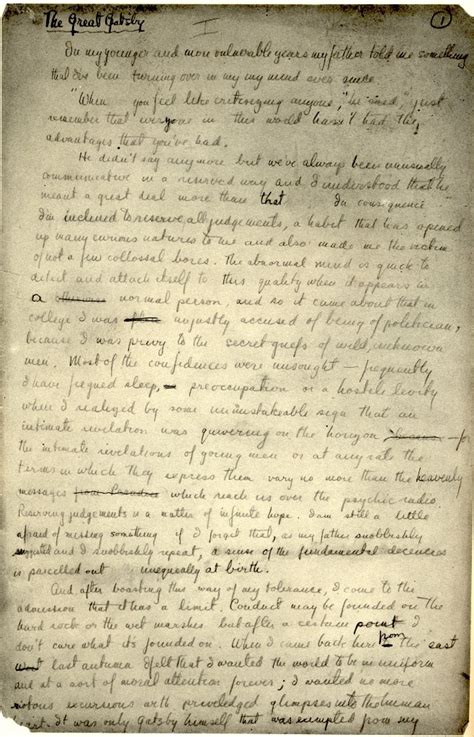 The Great Gatsby
I
1
In my younger and more vulnerable years my father told me something
that I've been turning over in my my mind ever since.
"When you feel like criticizing anyone," he said, "just
remember that everyone in this world hasn't had the
advantages that you've had.
He didn't say anymore but we've always been unusually
communicative in a reserved way and I understood that he
meant a great deel more than that In consequence
I'm inclined to reserve all judgements, a habit that has opened
up many curious natures to me and also made me the victim
of not a few collossal bores. The abnormal mind is quick to
detect and attach itself to this quality when it appears in
a normal person, and so it came about that in
college I was unjustly accused of being a politician,
because I was privy to the secret griefs of wild, unknown
men. Most of the confidences were unsought – frequently
I have feigned sleep, preoccupation or a hostile levity
when I realized by some unmistakeable sign that an
intimate revelation was quivering on the horizon – for
the intimate revelations of young men or at any rate the
terms in which they express them vary no more than the heavenly
messages which reach us over the psychic radio.
Reserving judgements is a matter of infinite hope. I am still a little
afraid of missing something if I forget that, as my father snobbishly
and I snobbishly repeat, a sense of the fundamental decencies
is parcelled out unequally at birth.
And after boasting this way of my tolerance, I come to the
admission that it has a limit. Conduct may be founded on the
hard rock or the wet marshes but after a certain point I
don't care what it's founded on. When I came back here from the east
last autumn I felt that I wanted the world to be in uniform
and at a sort of moral attention forever; I wanted no more
riotous excursions with priviledged glimpses into the human
heart. It was only Gatsby himself that was exempted from my